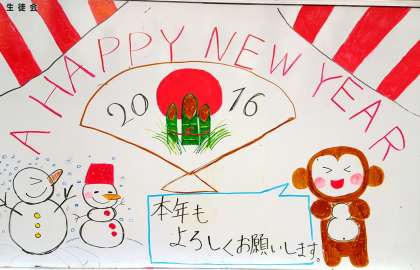 生徒会
A HAPPY NEW YEAR
2016
本年も
よろしくお願いします。